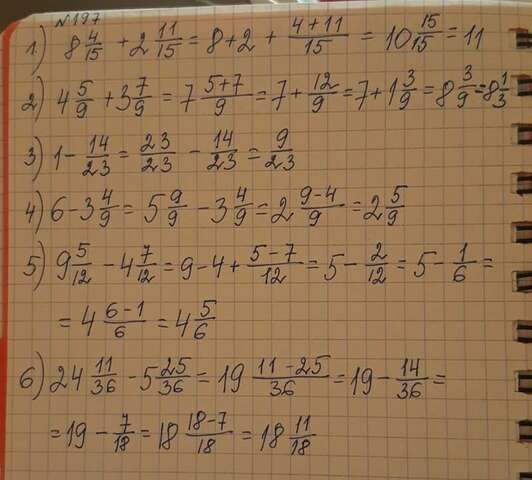 №197
1) 8 4/15 + 2 11/15 = 8+2 + (4+11)/15 = 10 15/15 = 11
2) 4 5/9 + 3 7/9 = 7 (5+7)/9 = 7 + 12/9 = 7 + 1 3/9 = 8 3/9 = 8 1/3
3) 1 - 14/23 = 23/23 - 14/23 = 9/23
4) 6 - 3 4/9 = 5 9/9 - 3 4/9 = 2 (9-4)/9 = 2 5/9
5) 9 5/12 - 4 7/12 = 9 - 4 + (5-7)/12 = 5 - 2/12 = 5 - 1/6 =
= 4 (6-1)/6 = 4 5/6
6) 24 11/36 - 5 25/36 = 19 (11-25)/36 = 19 - 14/36 =
= 19 - 7/18 = 18 (18-7)/18 = 18 11/18